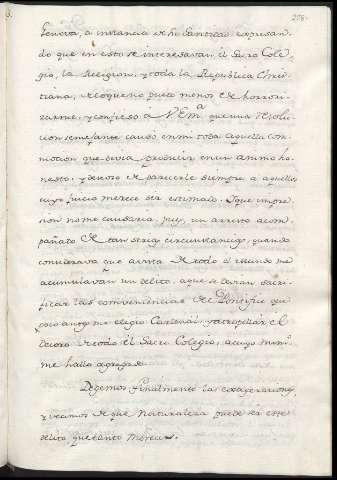 278.
Señora, a instancia de hi Santita expresan-
do que en esto se interesavan el Sacro Cole-
gio, la Religion, y toda la Republica Chris-
tiana, de lo que no pude menos de horrori-
zarme, y confieso à V. Emª. que una resolu-
cion semejante causó en mi toda aquella com-
mocion que devia producir en un animo ho-
nesto, y deseoso de parecerle siempre a aquellos
cuyo juicio merece ser estimado. Y que impre-
sion no me causaria, pues, un arresto acom-
pañado de tan serias circunstancias, quando
considerava que a vista de todo el mundo me
acumulavan un delito, a que se devian sacri-
ficar las conveniencias del Pontifice que
poco antes me eligio Cardenal, y atropellar el
decoro de todo el Sacro Colegio, a cuyo num.º
me hallo agregado.
Dejemos finalmente las exageraciones,
y veamos de que naturaleza puede ser este
delito, que tanto